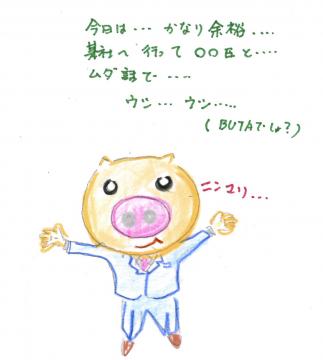 今日は… かなり余裕….
某社へ 行って 〇〇氏と….
ムダ話で …..
ウッ… ウッ…..
(BUTAでしょ?)
ニンマリ…